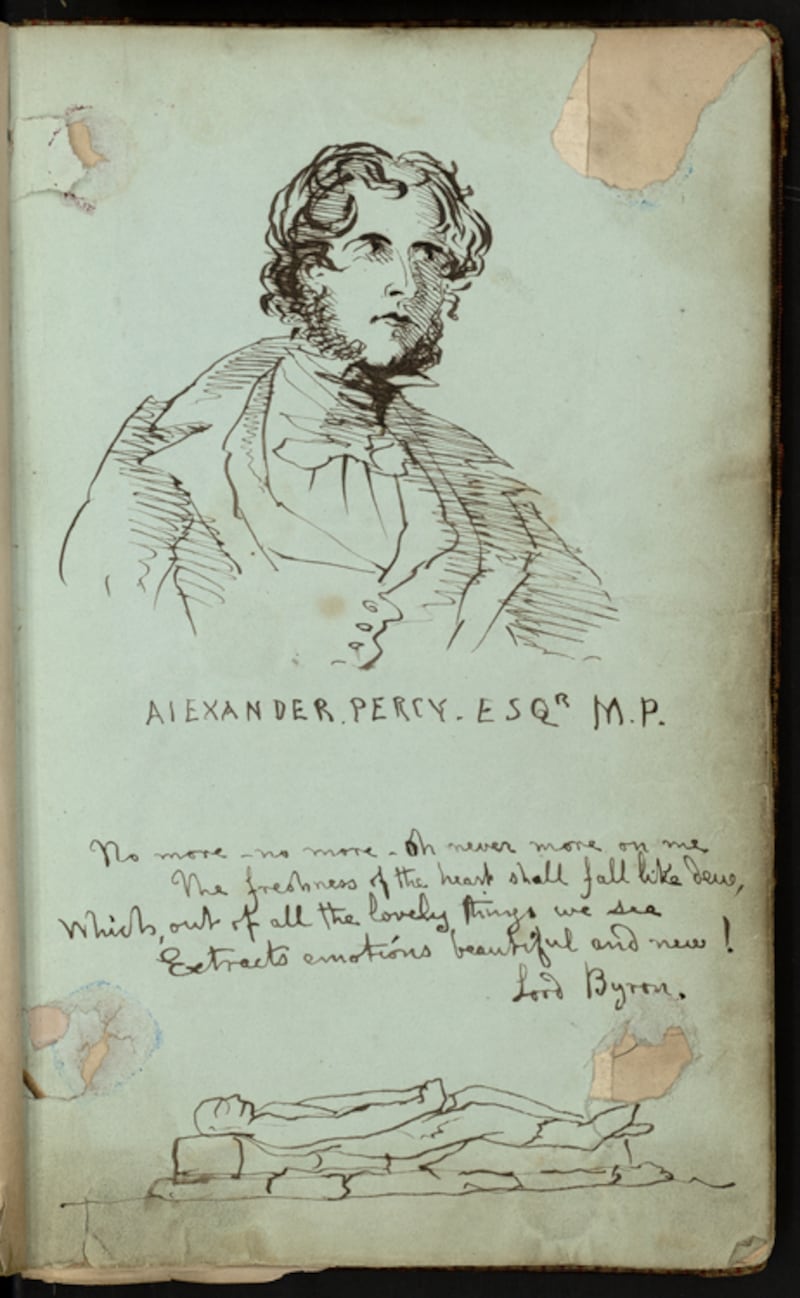 AlEXANDER. PERCY. ESQR M.P.
No more - no more - Oh never more on me
The freshness of the heart shall fall like dew,
Which, out of all the lovely things we see
Extracts emotions beautiful and new!
Lord Byron.